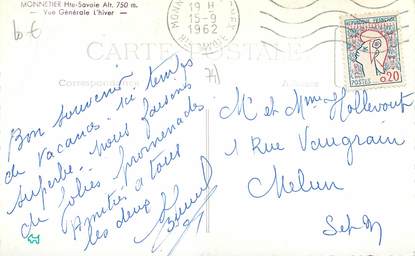 MONNETIER Hte-Savoie Alt. 750 m.
Vue Générale L'hiver
10 €
19 H
15-9
1962
CARTE POSTALE
Correspondance
74
REPUBLIQUE FRANÇAISE
POSTES 0,20
Bon souvenir
de vacances. ici temps
superbe. nous faisons
de jolies promenades
Amitiés à tous
les deux
Mr et Mme Hollevout
1 Rue Vaugrain
Melun
S et M